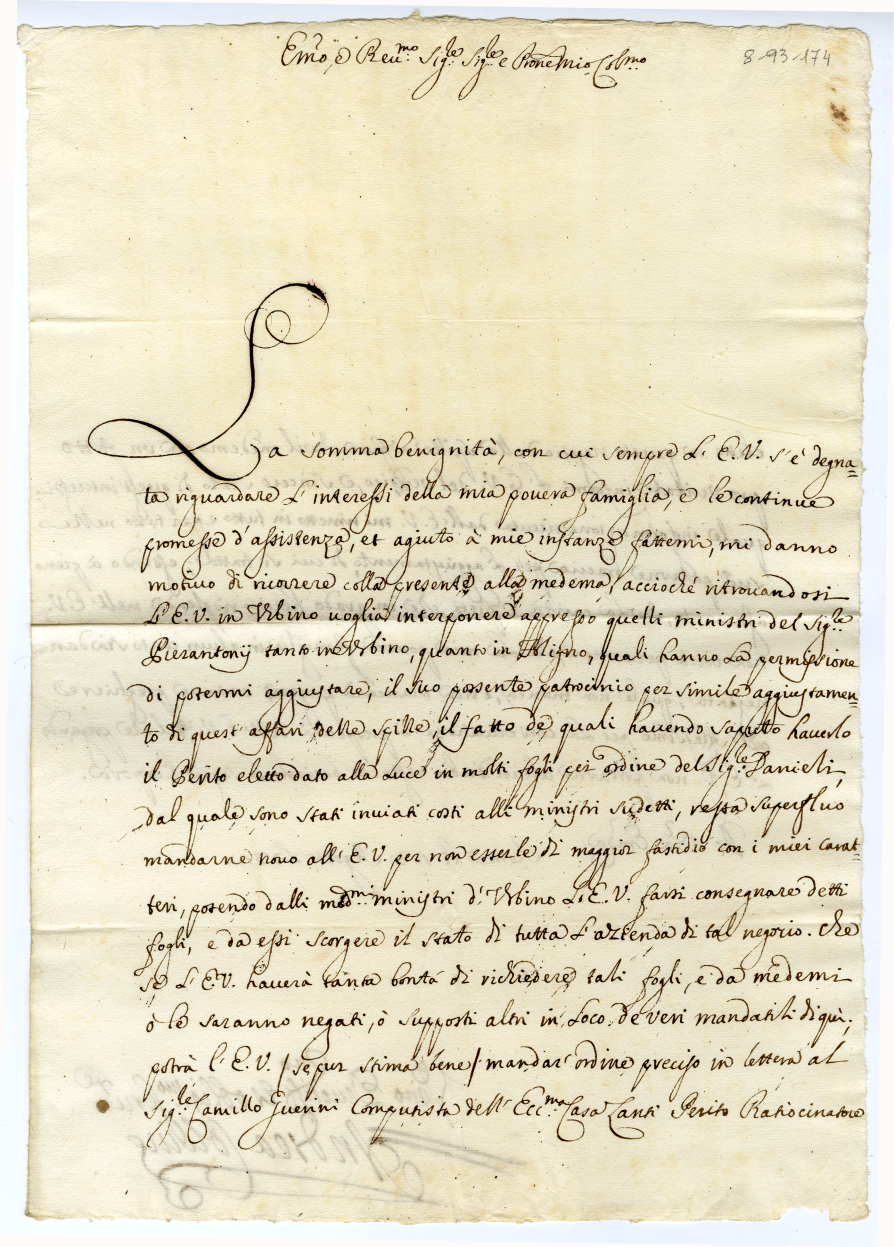 Em̃o, e Reu.mo Sig.le Sig.le e Pron̄e Mio Col.mo
8-93-174
La somma benignità, con cui sempre L' E. V. s' è degna=
ta riguardare L' interessi della mia povera famiglia, e le continue
promesse d' assistenza, et agiuto à mie instanze fattemi, mi danno
motivo di ricorrere colla presente alla medema, accioché ritrouandosi
L' E. V. in Vrbino uoglia interponere appresso quelli ministri del Sig.le
Pierantonij tanto in Vrbino, quanto in quali hanno La permissione
di potermi aggiustare, il suo possente patrocinio per simile aggiustamen=
to di quest' affari delle spille, il fatto de quali havendo saputo haverlo
il Perito eletto dato alla Luce in molti fogli per ordine del Sig.le Danieli,
dal quale sono stati inviati costi alli ministri sudetti, resta superfluo
mandarne novo all' E. V. per non esserle di maggior fastidio con i miei carat=
teri, potendo dalli med.mi ministri d' Vrbino L' E. V. farsi consegnare detti
fogli, e da essi scorgere il stato di tutta L' azienda di tal negozio. Che
se L' E. V. haverà tanta bontá di richiedere tali fogli, e da medemi
ò le saranno negati, ò supposti altri in Loco de veri mandatili di quì;
potrà l' E. V. / se pur stima bene / mandar' ordine preciso in lettera al
Sig.le Camillo Guerini Computista dell' Ecc.ma Casa Lanti Perito Ratiocinatore